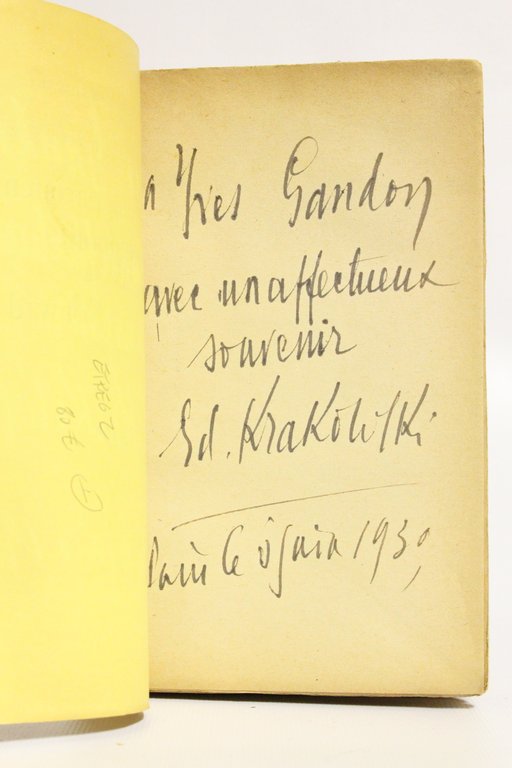 a Yves Gandon
avec un affectueux
souvenir
Ed. Krakowski
Paris le juin 1939